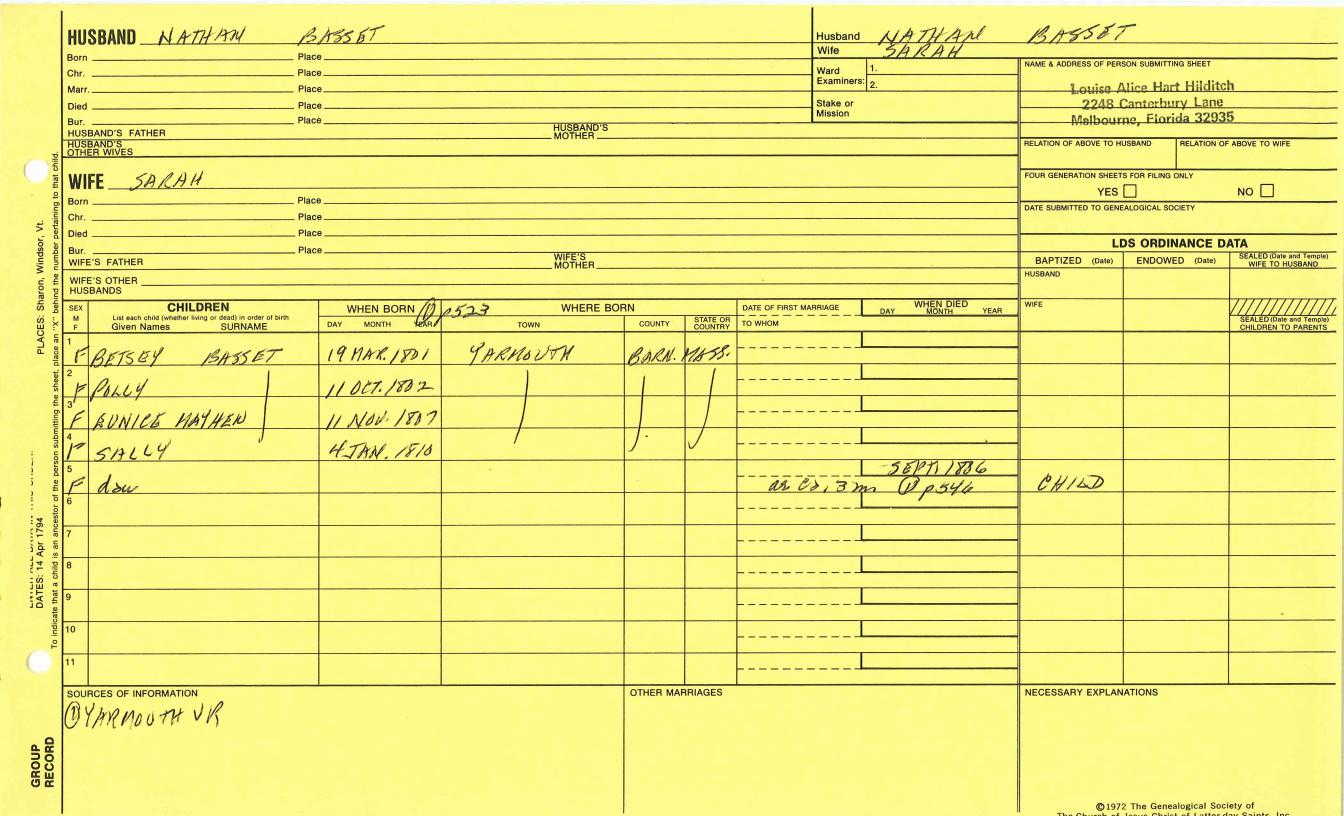 HUSBAND NATHAN BASSET
Born Place
Chr. Place
Marr. Place
Died Place
Bur. Place
HUSBAND'S FATHER HUSBAND'S MOTHER
HUSBAND'S OTHER WIVES
Husband NATHAN BASSET
Wife SARAH
Ward Examiners: 1.
2.
Stake or Mission
NAME & ADDRESS OF PERSON SUBMITTING SHEET
Louise Alice Hart Hilditch
2248 Canterbury Lane
Melbourne, Florida 32935
RELATION OF ABOVE TO HUSBAND RELATION OF ABOVE TO WIFE
FOUR GENERATION SHEETS FOR FILING ONLY
YES NO
DATE SUBMITTED TO GENEALOGICAL SOCIETY
WIFE SARAH
Born Place
Chr. Place
Died Place
Bur. Place
WIFE'S FATHER WIFE'S MOTHER
WIFE'S OTHER HUSBANDS
LDS ORDINANCE DATA
BAPTIZED (Date) ENDOWED (Date) SEALED (Date and Temple) WIFE TO HUSBAND
HUSBAND
WIFE
SEALED (Date and Temple) CHILDREN TO PARENTS
SEX M F
CHILDREN
List each child (whether living or dead) in order of birth
Given Names SURNAME
WHEN BORN ① p523
DAY MONTH YEAR
WHERE BORN
TOWN COUNTY STATE OR COUNTRY
DATE OF FIRST MARRIAGE
TO WHOM
WHEN DIED
DAY MONTH YEAR
1 F BETSEY BASSET 19 MAR. 1801 YARMOUTH BARN. MASS.
2 F POLLY 11 OCT. 1802
3 F EUNICE MAYHEN 11 NOV. 1807
4 F SALLY 4 JAN. 1810
5 F dau SEPT. 1806
ae ca. 3 m ① p546 CHILD
6
7
8
9
10
11
SOURCES OF INFORMATION
① YARMOUTH VR
OTHER MARRIAGES
NECESSARY EXPLANATIONS
©1972 The Genealogical Society of
The Church of Jesus Christ of Latter-day Saints, Inc.
PLACES: Sharon, Windsor, Vt.
DATES: 14 Apr 1794
To indicate that a child is an ancestor of the person submitting the sheet, place an "X" behind the number pertaining to that child.
GROUP RECORD